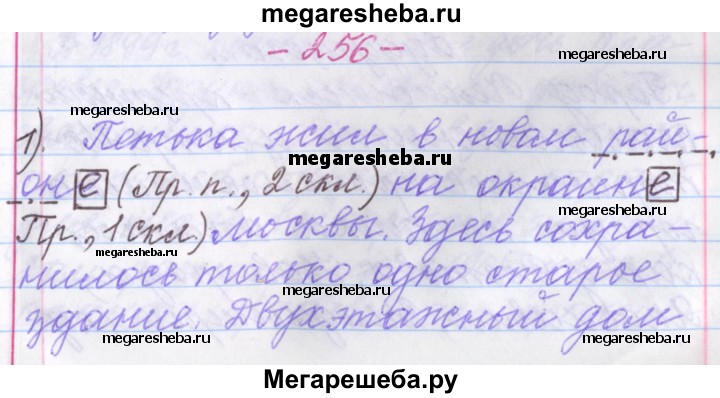 megaresheba.ru
- 256 -
megaresheba.ru
megaresheba.ru
1). Петька жил в новом рай-
megaresheba.ru
оне (Пр. п., 2 скл.) на окраине
Пр., 1 скл.) Москвы. Здесь сохра-
нилось только одно старое
megaresheba.ru
здание. Двухэтажный дом
megaresheba.ru
megaresheba.ru
Мегарешеба.ру